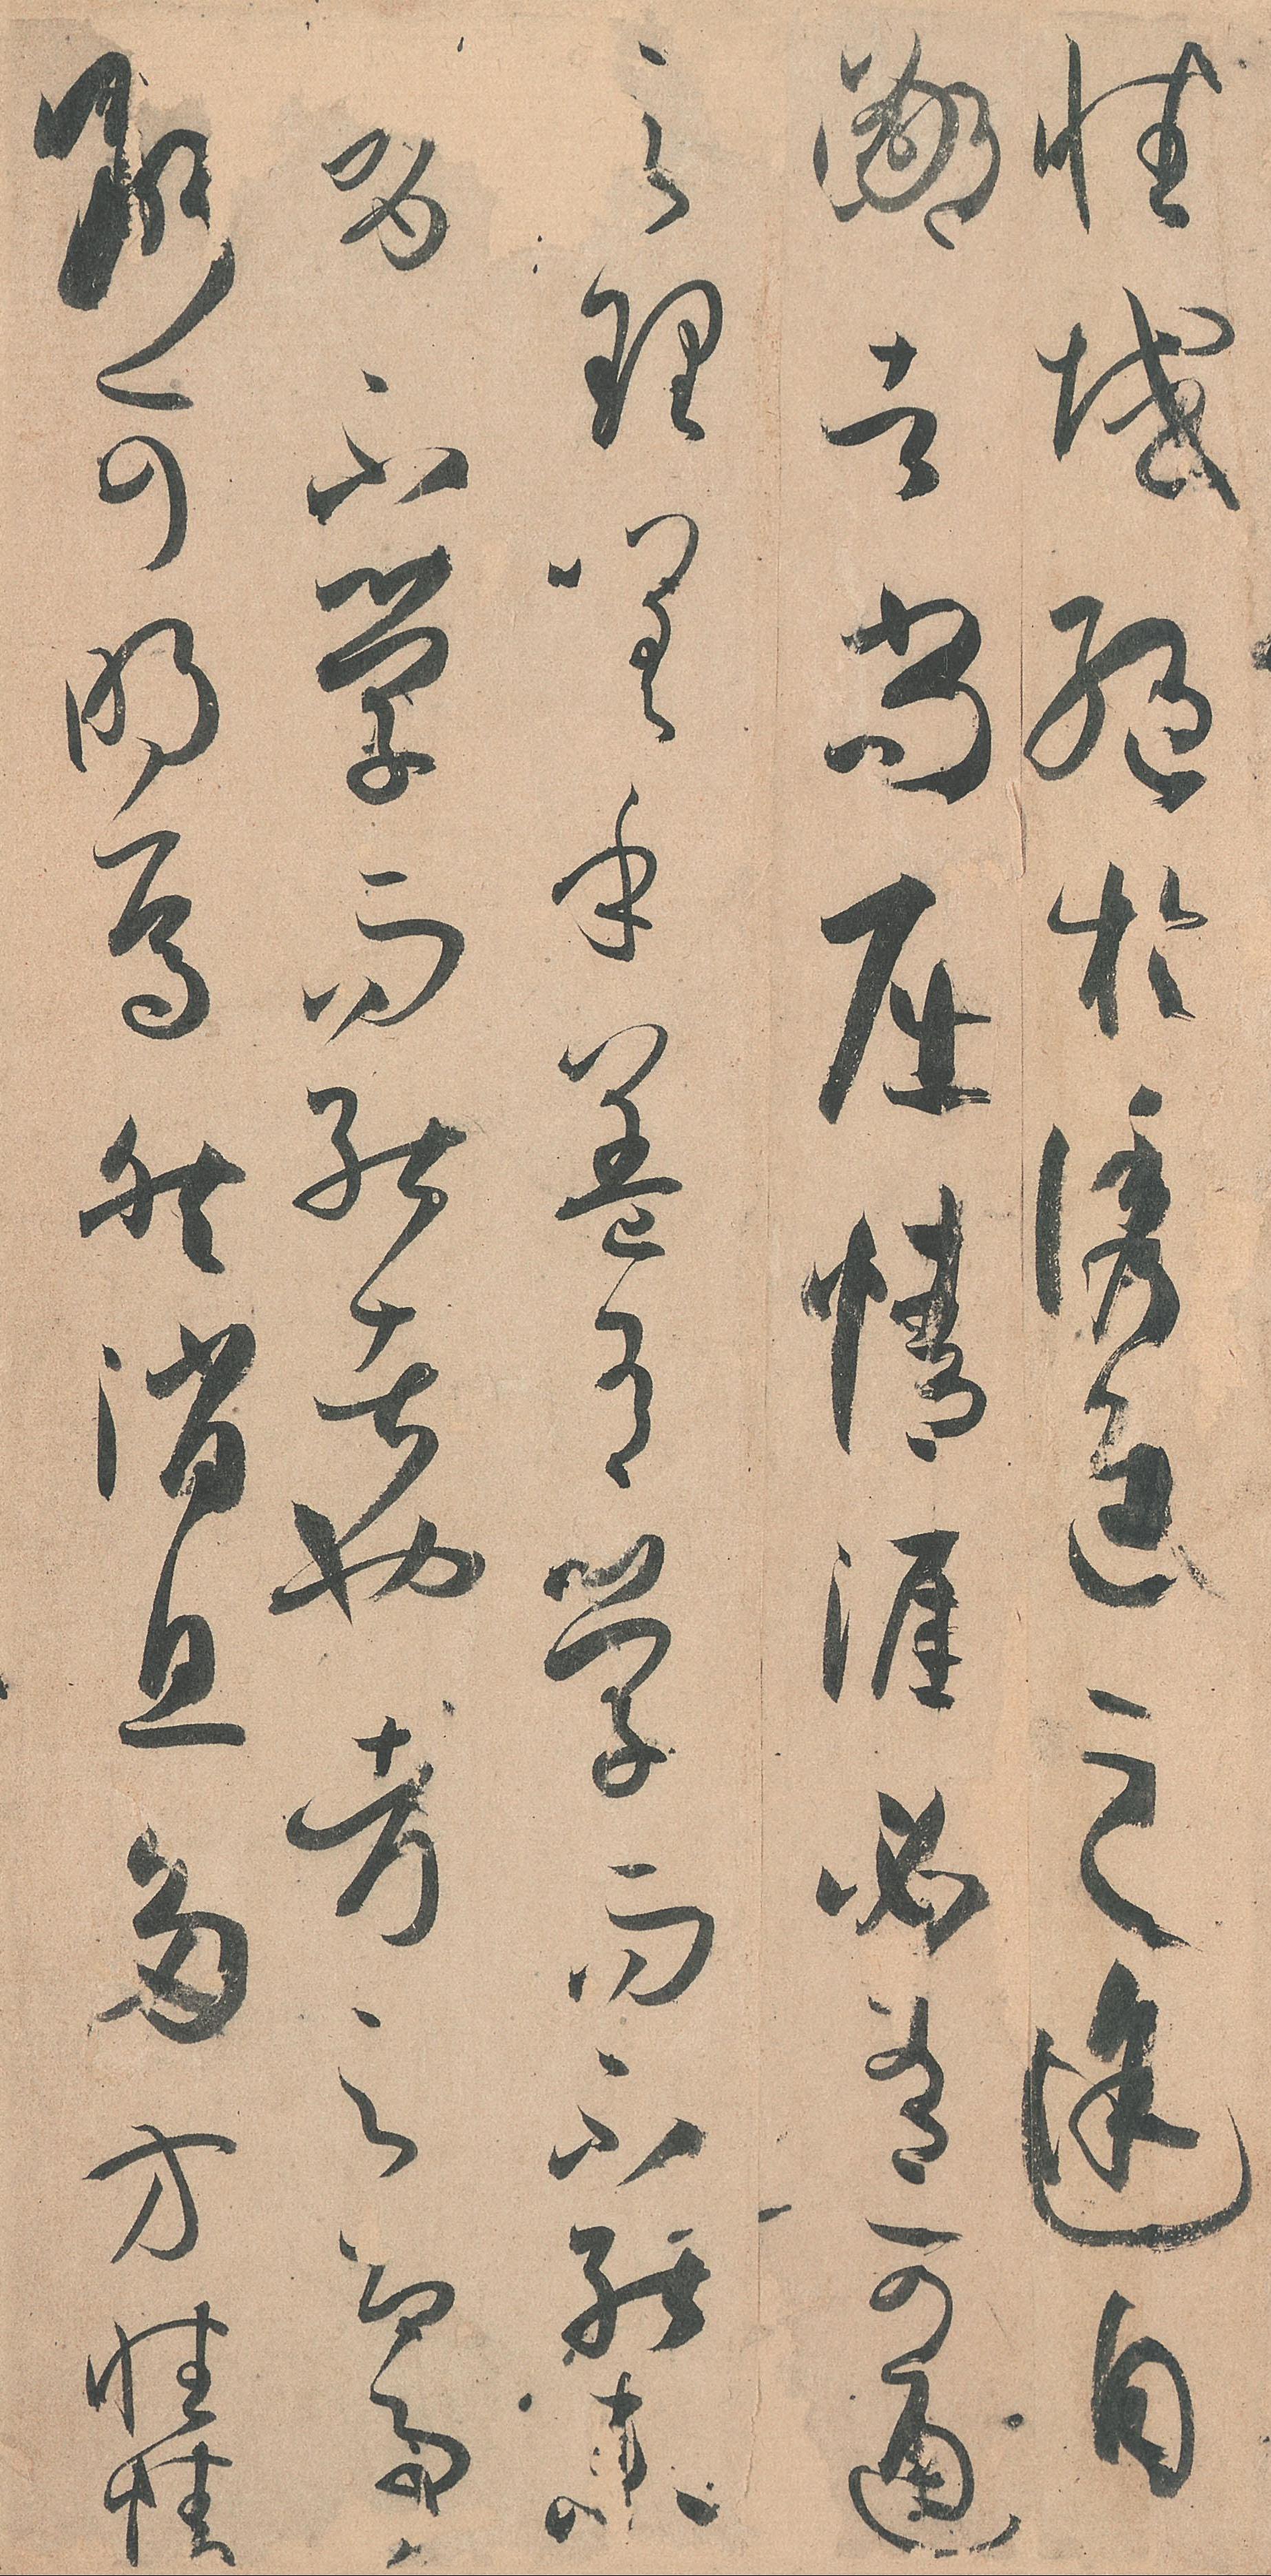 性域絕於誘進之途自
鄙者尚屈情涯必有可通
之理嗟乎蓋有學而不能未
有不學而能者也考之即事
斷可明焉然消息多方性情